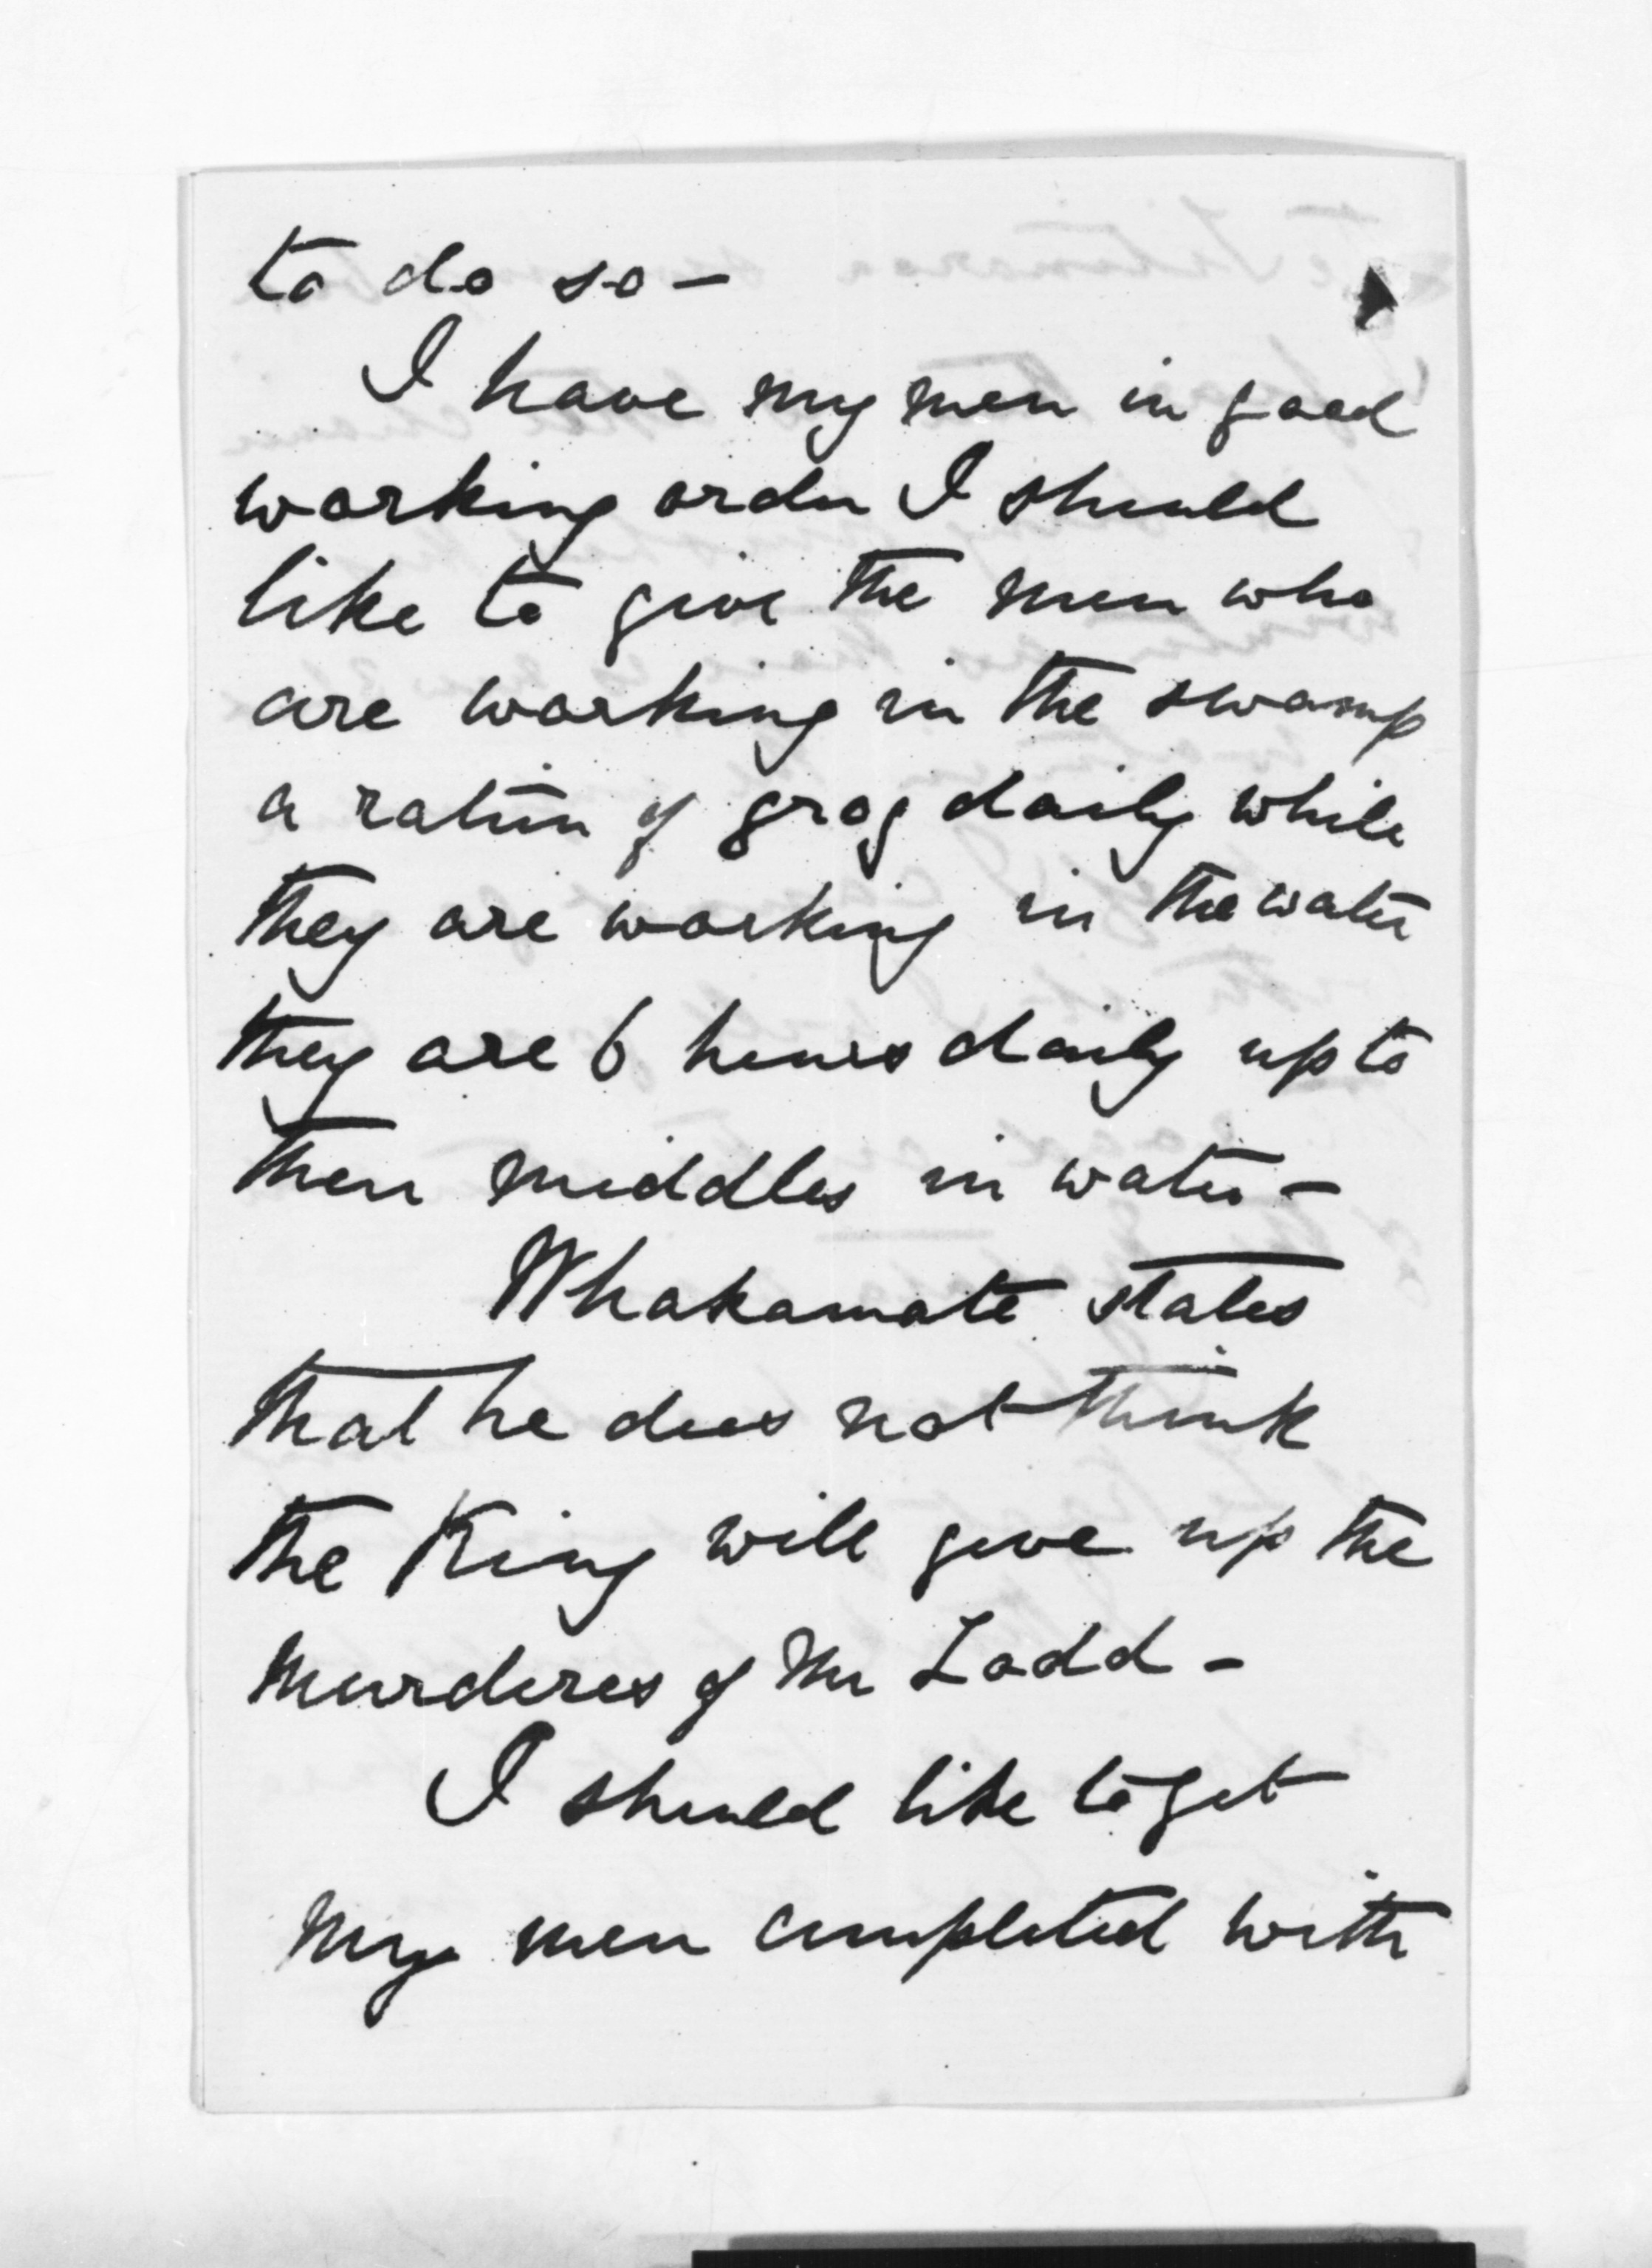 to do so -
I have my men in good
working order I should
like to give the men who
are working in the swamp
a ration of grog daily while
they are working in the water
they are 6 hours daily up to
their middles in water -
Whakamate states
that he does not think
the King will give up the
murderers of Mr Ladd -
I should like to get
my men completed with